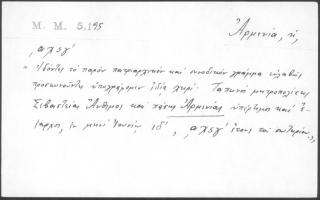 M. M. 5,195
Ἀρμενία, ἡ,
͵αχξγʹ
"Ἰδόντες τὸ παρὸν πατριαρχικὸν καὶ συνοδικὸν γράμμα εὐλαβῶς
προσκυνοῦντες ὑπεγράψαμεν ἰδίᾳ χειρί. Ταπεινὸς μητροπολίτης
Σεβαστείας Ἄνθιμος καὶ πάσης Ἀρμενίας ὑπέρτιμος καὶ ἔ-
ξαρχος, ἐν μηνὶ Ἰουνίῳ ιδʹ, ͵αχξγʹ ἔτους τοῦ σωτηρίου,